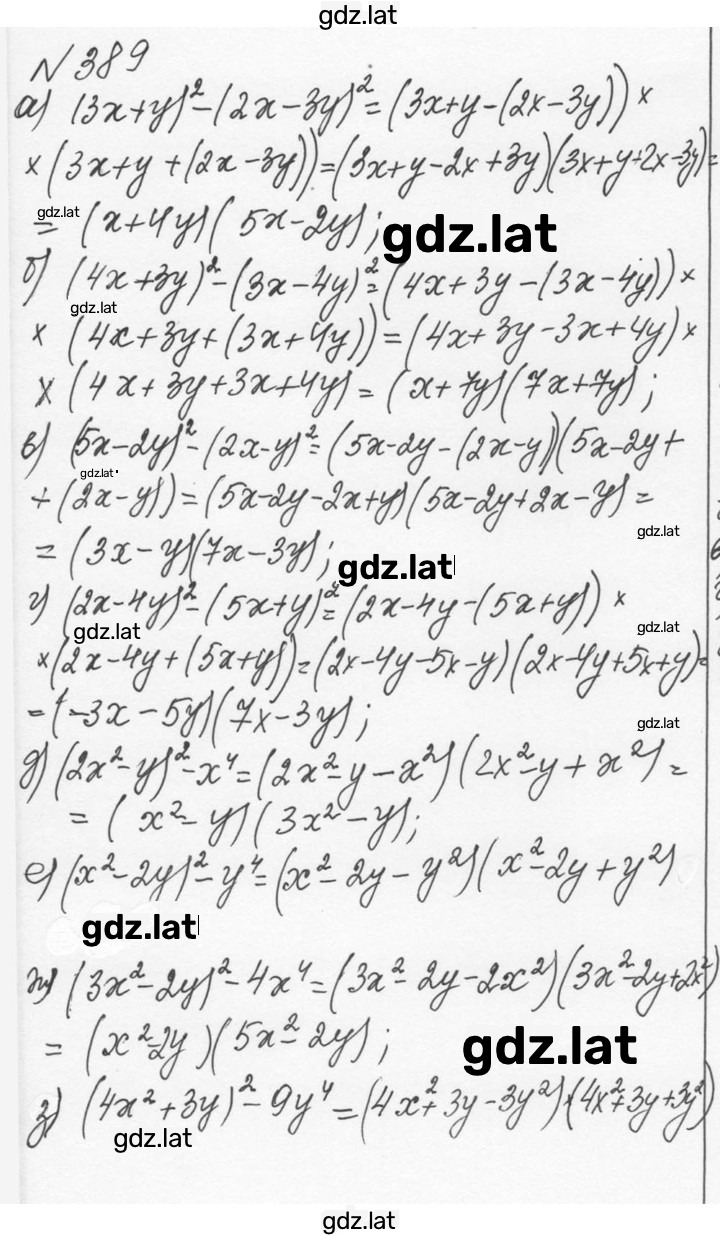 gdz.lat
N 389
а) (3x+y)²-(2x-3y)²=(3x+y-(2x-3y))×
×(3x+y+(2x-3y))=(3x+y-2x+3y)(3x+y+2x-3y)=
gdz.lat
=(x+4y)(5x-2y);
gdz.lat
б) (4x+3y)²-(3x-4y)²=(4x+3y-(3x-4y))×
gdz.lat
×(4x+3y+(3x+4y))=(4x+3y-3x+4y)×
×(4x+3y+3x+4y)=(x+7y)(7x+7y);
в) (5x-2y)²-(2x-y)²=(5x-2y-(2x-y))(5x-2y+
gdz.lat
+(2x-y))=(5x-2y-2x+y)(5x-2y+2x-y)=
gdz.lat
=(3x-y)(7x-3y);
gdz.lat
г) (2x-4y)²-(5x+y)²=(2x-4y-(5x+y))×
gdz.lat
gdz.lat
×(2x-4y+(5x+y))=(2x-4y-5x-y)(2x-4y+5x+y)=
=(-3x-5y)(7x-3y);
gdz.lat
д) (2x²-y)²-x⁴=(2x²-y-x²)(2x²-y+x²)=
=(x²-y)(3x²-y);
е) (x²-2y)²-y⁴=(x²-2y-y²)(x²-2y+y²)
gdz.lat
ж) (3x²-2y)²-4x⁴=(3x²-2y-2x²)(3x²-2y+2x²)
=(x²-2y)(5x²-2y);
gdz.lat
з) (4x²+3y)²-9y⁴=(4x²+3y-3y²)×(4x²+3y+3y²)
gdz.lat
gdz.lat